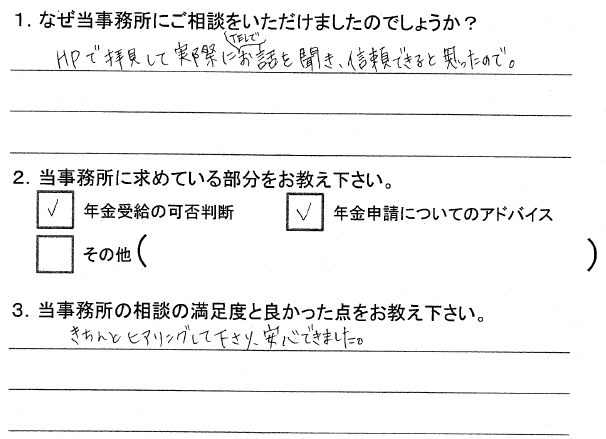 1. なぜ当事務所にご相談をいただけましたのでしょうか？
TELで
HPで拝見して実際にお話を聞き、信頼できると思ったので。
2. 当事務所に求めている部分をお教え下さい。
✓ 年金受給の可否判断 ✓ 年金申請についてのアドバイス
その他( )
3. 当事務所の相談の満足度と良かった点をお教え下さい。
きちんとヒアリングして下さり、安心できました。